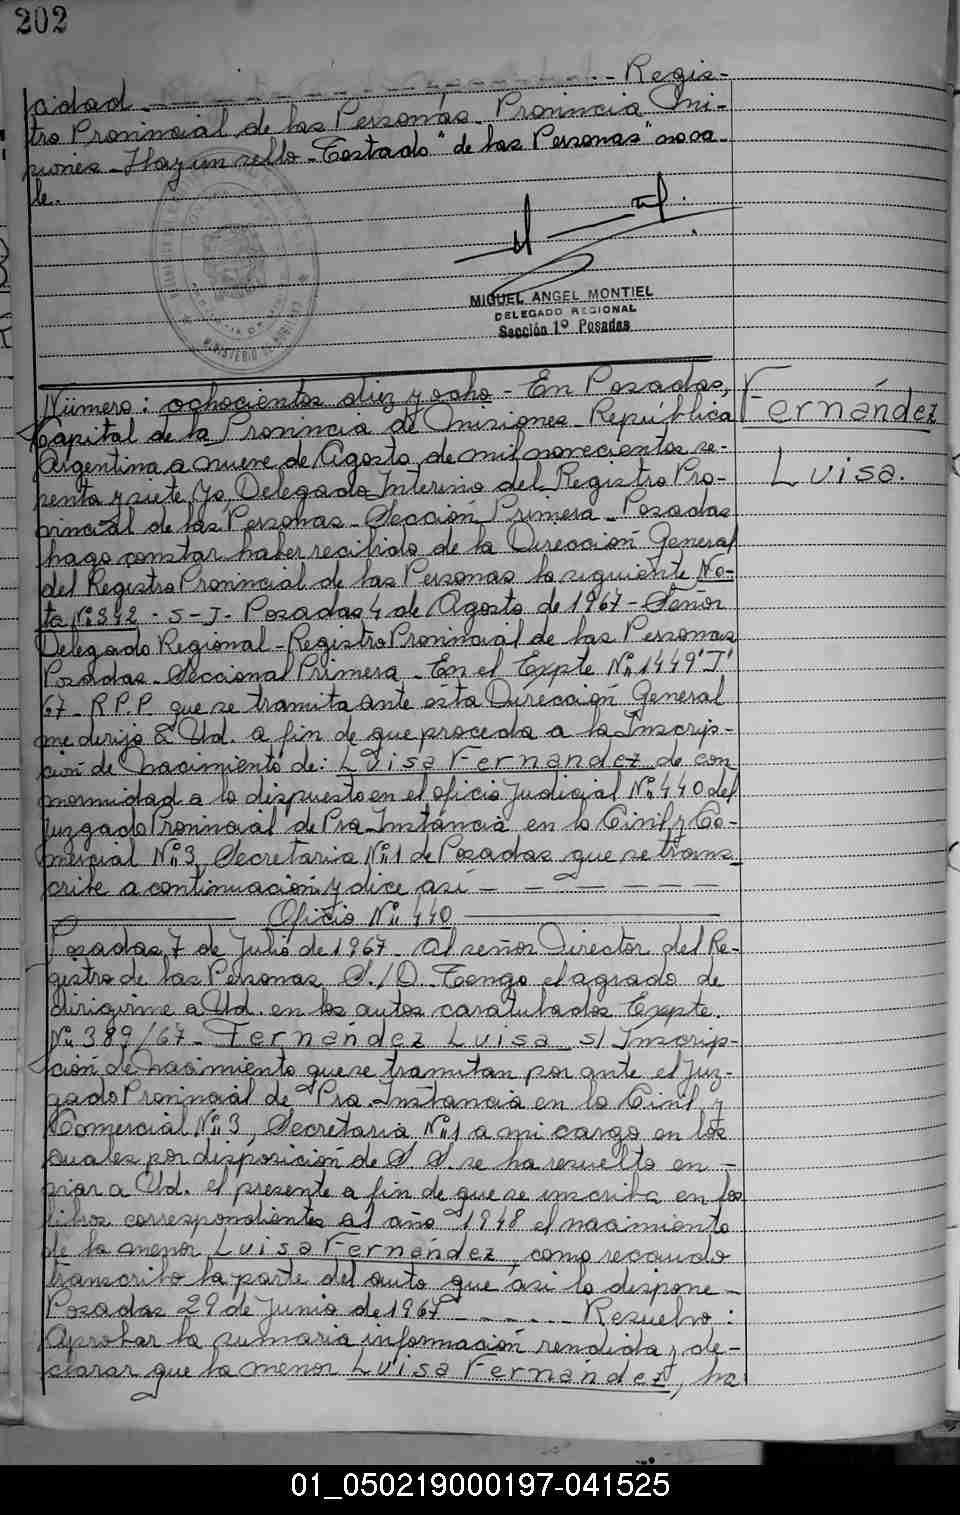 202
- Regis-
tro Provincial de las Personas - Provincia Misi-
piones - Hay un sello - Testado "de las Personas" no va-
le.
MIGUEL ANGEL MONTIEL
DELEGADO REGIONAL
Sección 1º Posadas
Número: ochocientos diez y ocho - En Posadas,
Capital de la Provincia de Misiones República
Argentina a nueve de Agosto de mil novecientos se-
senta y siete, Yo, Delegado Interino del Registro Pro-
vincial de las Personas - Sección Primera - Posadas
hago constar haber recibido de la Dirección General
del Registro Provincial de las Personas la siguiente No-
ta Nº 342 - S - J - Posadas 4 de Agosto de 1967 - Señor
Delegado Regional - Registro Provincial de las Personas
Posadas - Seccional Primera - En el Expte Nº 1449 "J"
67 - R.P.P. que se tramita ante ésta Dirección General
me dirijo a Ud. a fin de que proceda a la Inscrip-
ción de Nacimiento de: Luisa Fernandez de con
normidad a lo dispuesto en el oficio Judicial Nº 440 del
Juzgado Provincial de Pra Instancia en lo Civil y Co-
mercial Nº 3, Secretaria Nº 1 de Posadas que se trans
cribe a continuación y dice así - - - - - -
Oficio Nº 440
Posadas, 7 de Julio de 1967 - Al señor Director del Re-
gistro de las Personas S./D. Tengo el agrado de
dirigirme a Ud. en los autos caratulados Expte.
Nº 389/67 - Fernández Luisa s/ Inscrip-
ción de nacimiento que se tramitan por ante el Juz-
gado Provincial de Pra Instancia en lo Civil y
Comercial Nº 3, Secretaria Nº 1 a mi cargo en los
cuales por disposición de S.S. se ha resuelto en -
viar a Ud. el presente a fin de que se inscriba en los
libros correspondientes al año 1948 el nacimiento
de la menor Luisa Fernández, como recaudo
transcribo la parte del auto que así lo dispone -
Posadas 29 de Junio de 1967 - - - - - Resuelvo:
Aprobar la sumaria información rendida y de-
clarar que la menor Luisa Fernández, ha
Fernández
Luisa.
01_050219000197-041525